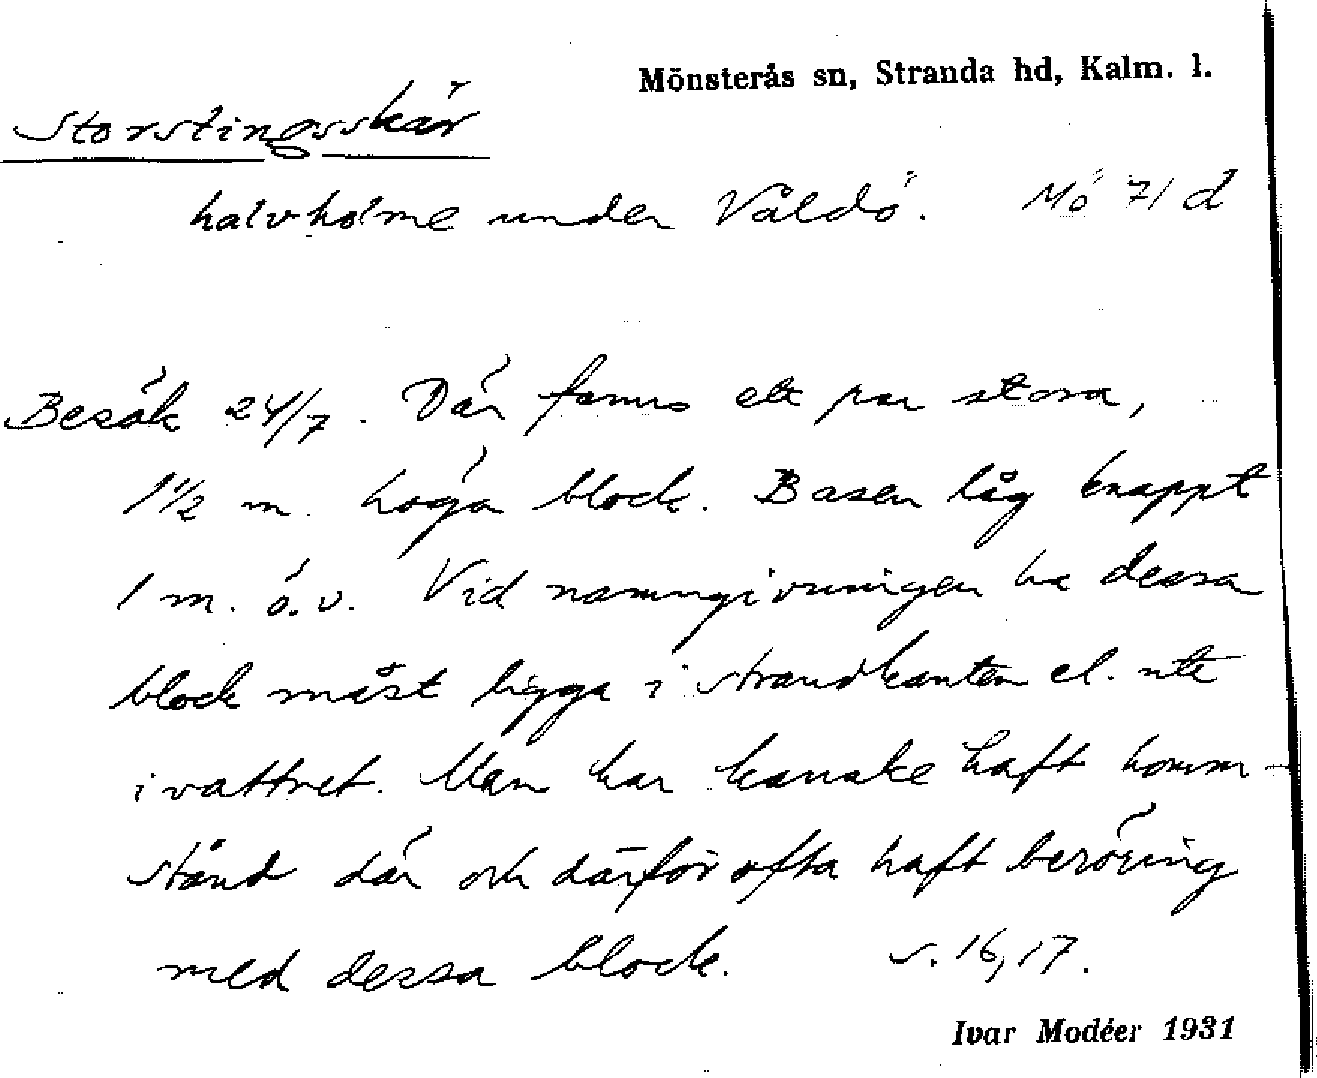 Mönsterås sn, Stranda hd, Kalm. l.
Storstingsskär
halvholme under Våldö. Mö 71 d
Besök 24/7. Där fanns ett par stora,
1 1/2 m. höga block. Basen låg knappt
1 m. ö.v. Vid namngivningen ha dessa
block måst ligga i strandkanten el. ute
i vattnet. Man har kanske haft
stånd där och därför ofta haft beröring
med dessa block. s. 16, 17.
Ivar Modéer 1931